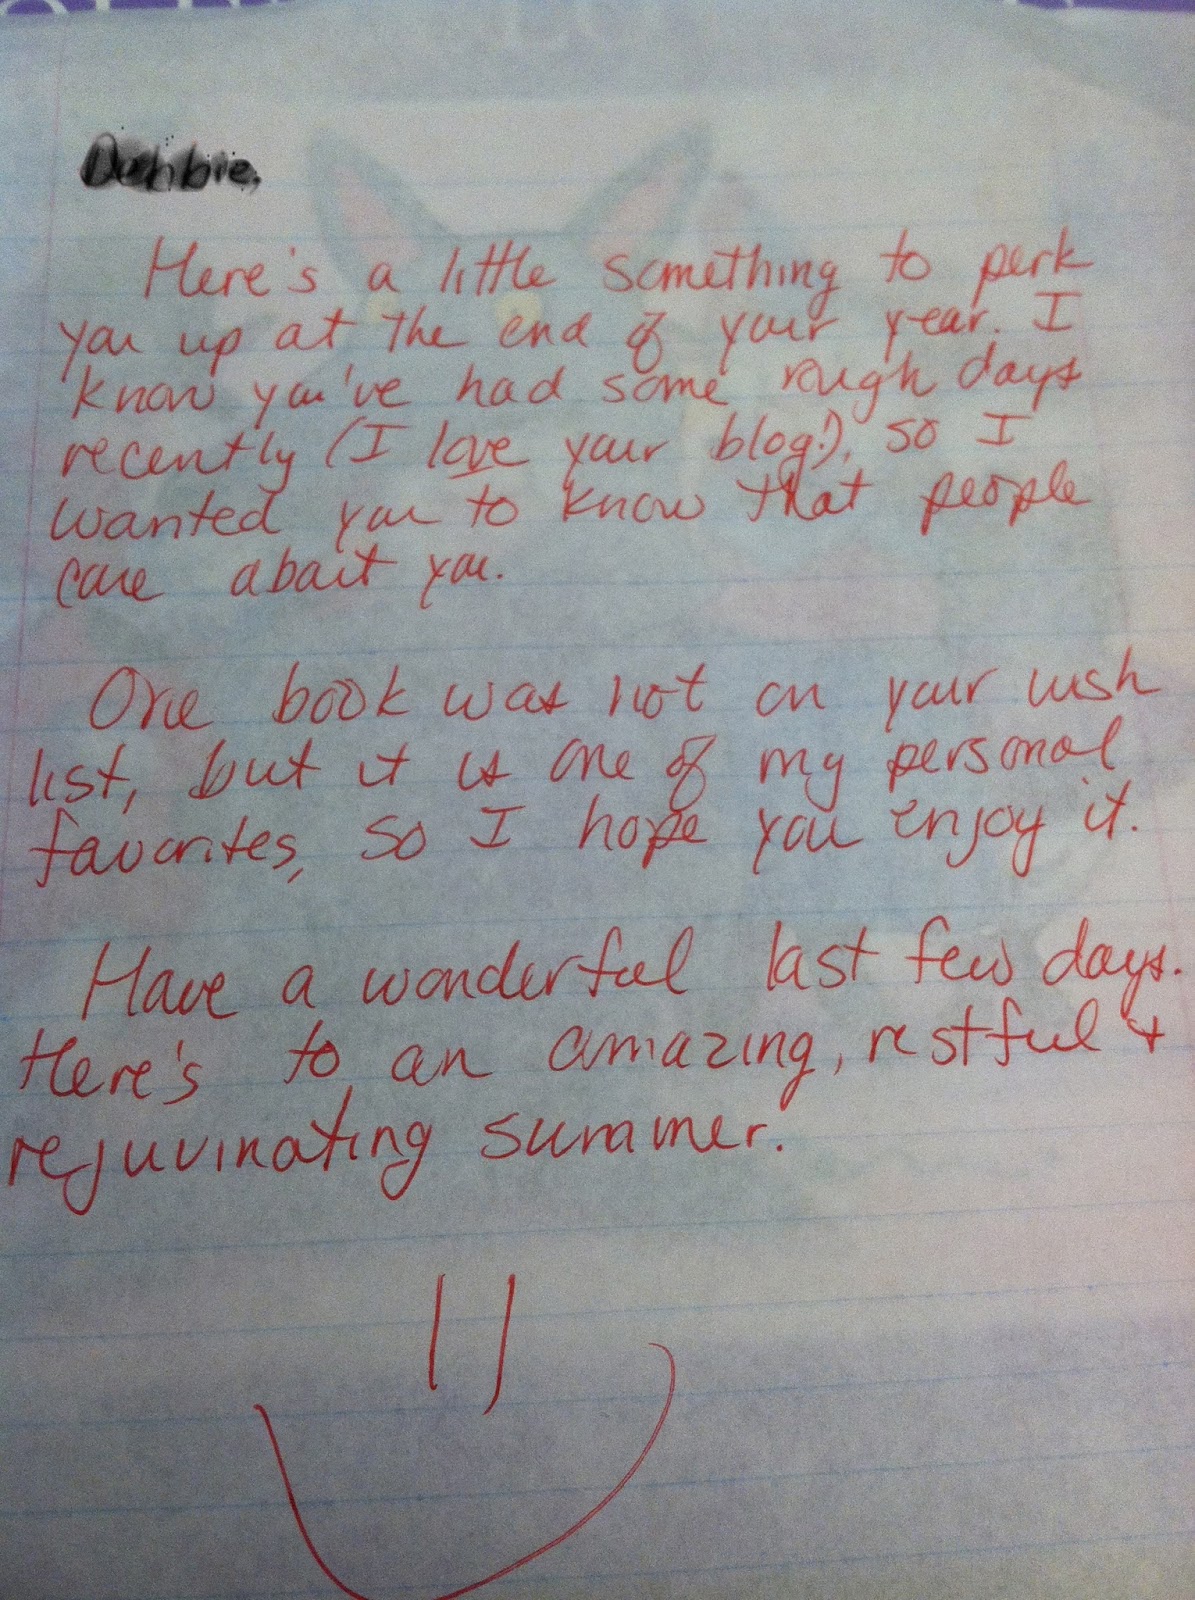 Here's a little something to perk
you up at the end of your year. I
know you've had some rough days
recently (I love your blog!), so I
wanted you to know that people
care about you.
One book was not on your wish
list, but it is one of my personal
favorites, so I hope you enjoy it.
Have a wonderful last few days.
Here's to an amazing, restful +
rejuvinating summer.